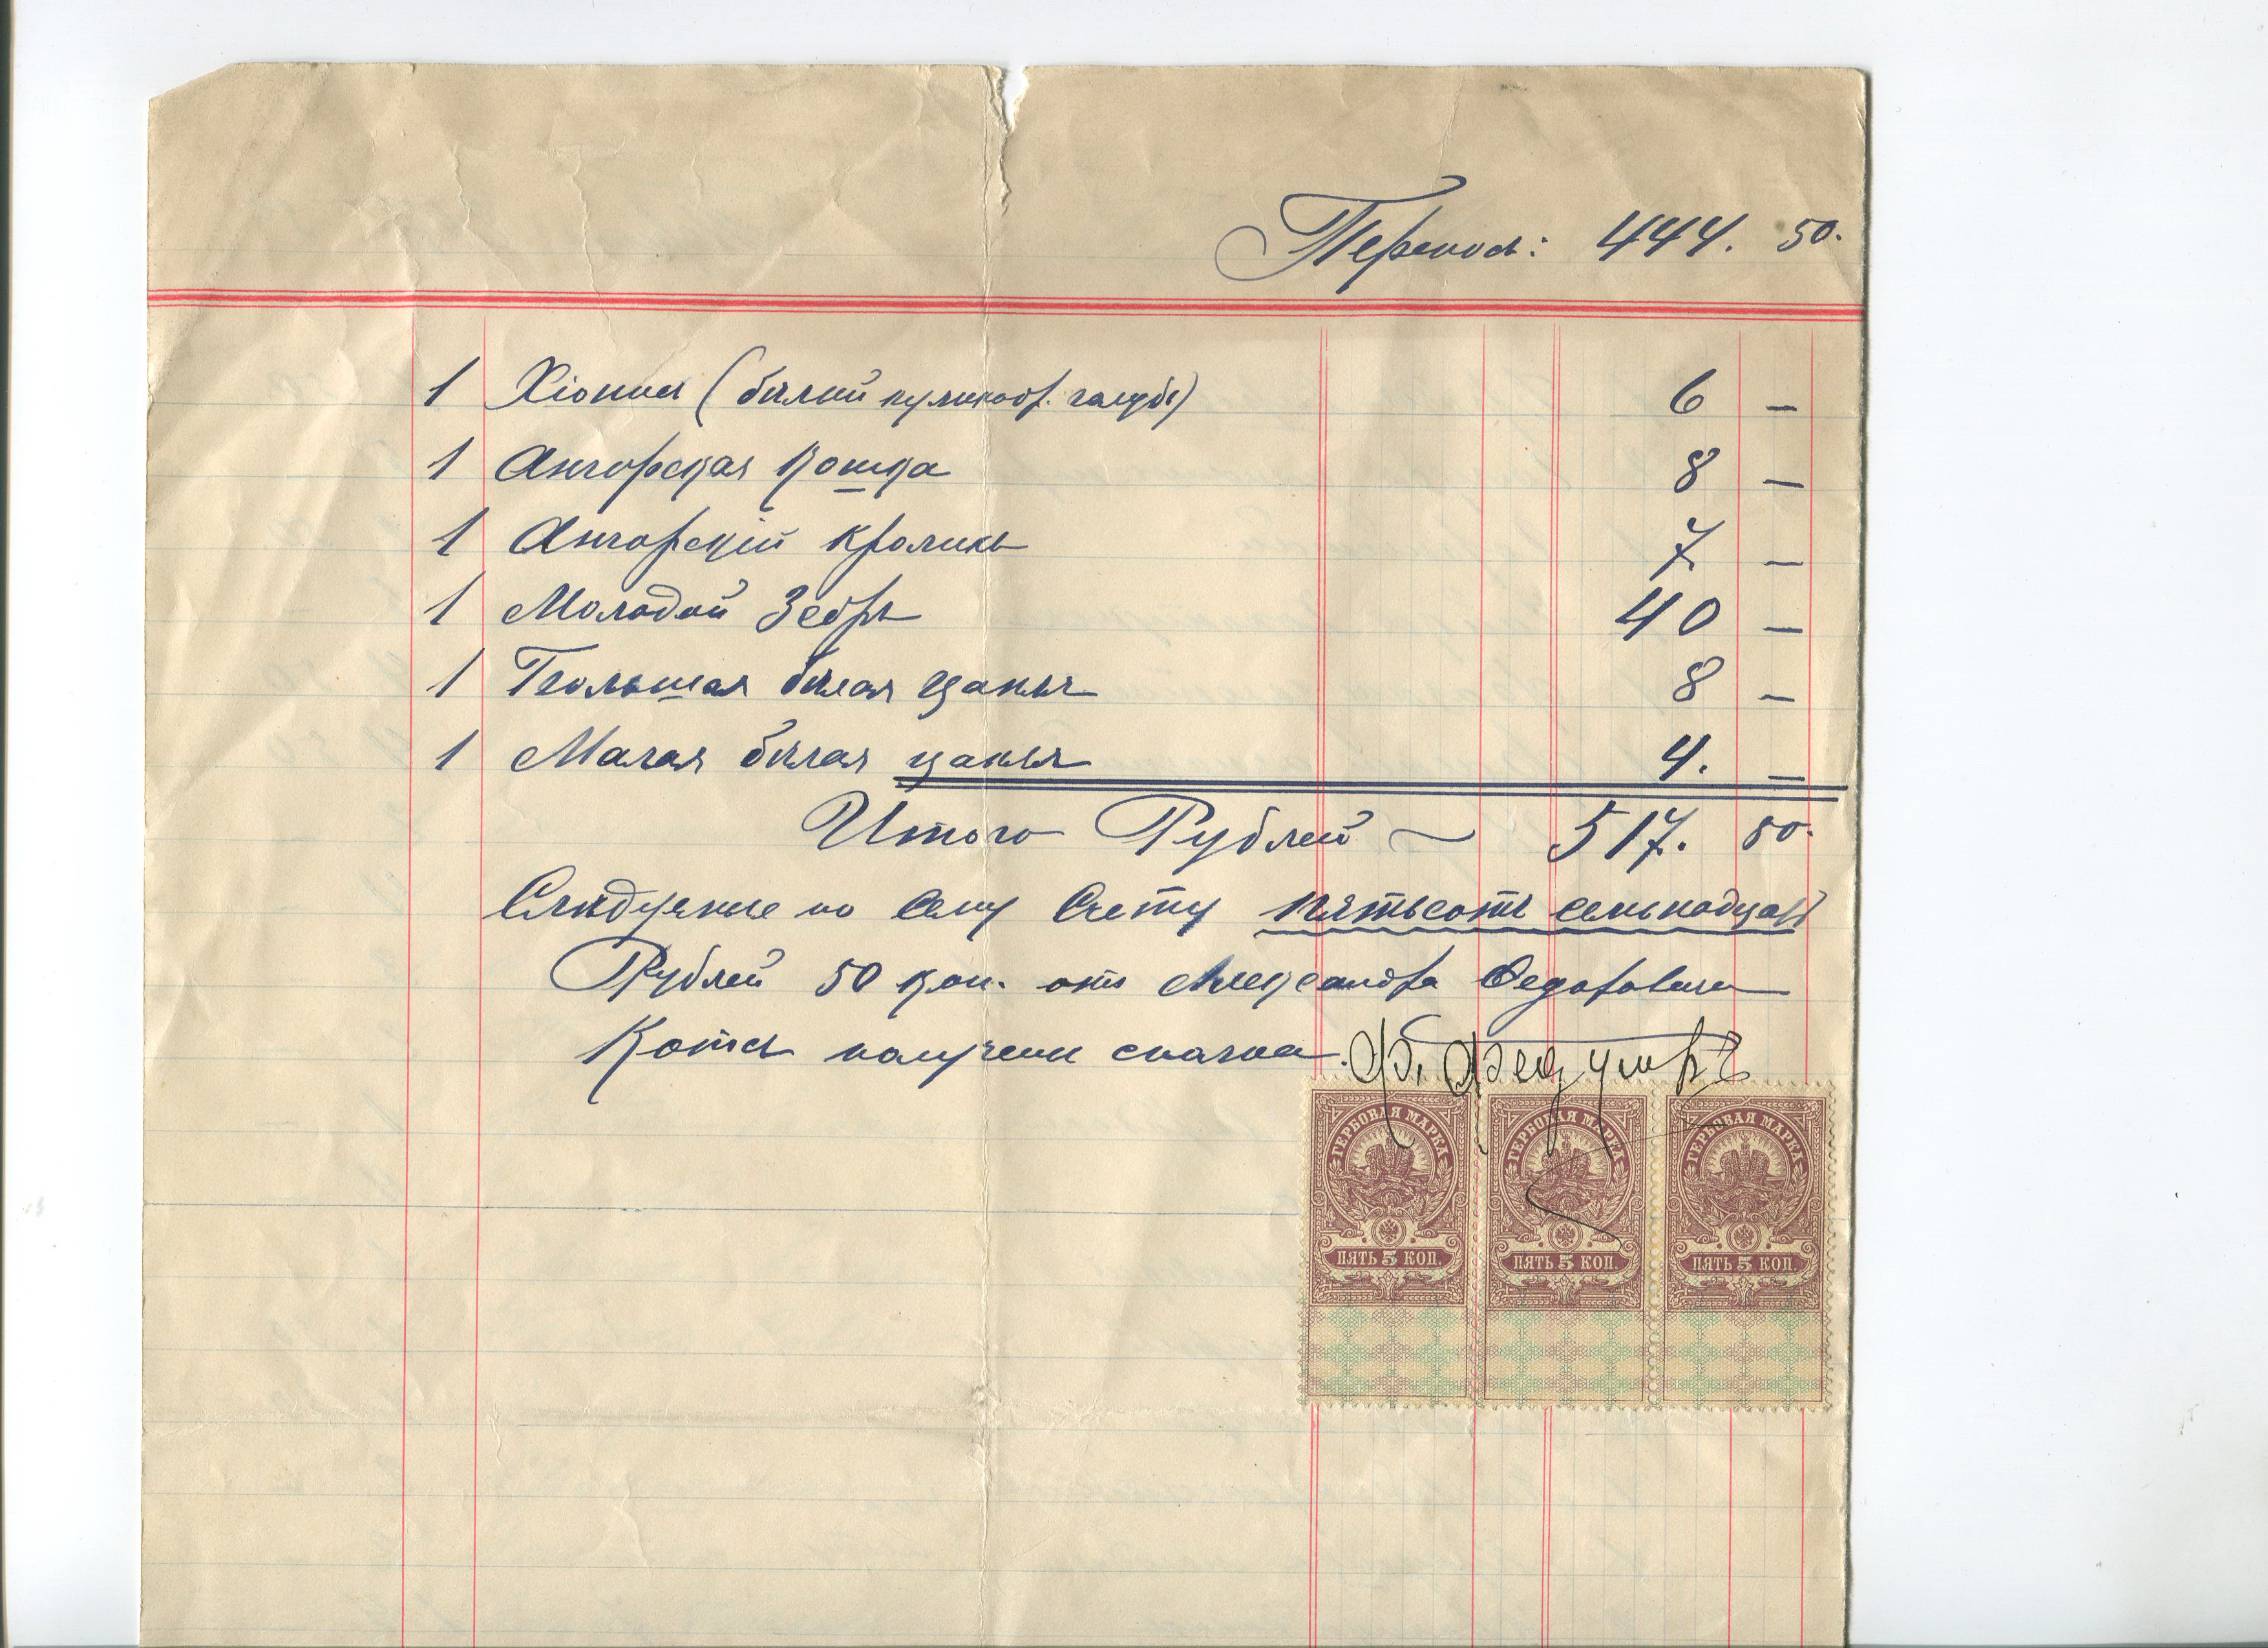 Переносъ: 444. 50.
1 Хіонисъ (бѣлый куликообр. голубь) 6 —
1 Ангорская Кошка 8 —
1 Ангорскій Кроликъ 7 —
1 Молодой Зебръ 40 —
1 Большая бѣлая цапля 8 —
1 Малая бѣлая цапля 4. —
Итого Рублей ~ 517. 50.
Слѣдуемые по Сему Счету пятьсотъ семьнадцать
Рублей 50 коп. отъ Александра Федоровича
Котсъ получилъ сполна. Ф. Федулов
ГЕРБОВАЯ МАРКА ГЕРБОВАЯ МАРКА ГЕРБОВАЯ МАРКА
ПЯТЬ 5 КОП. ПЯТЬ 5 КОП. ПЯТЬ 5 КОП.